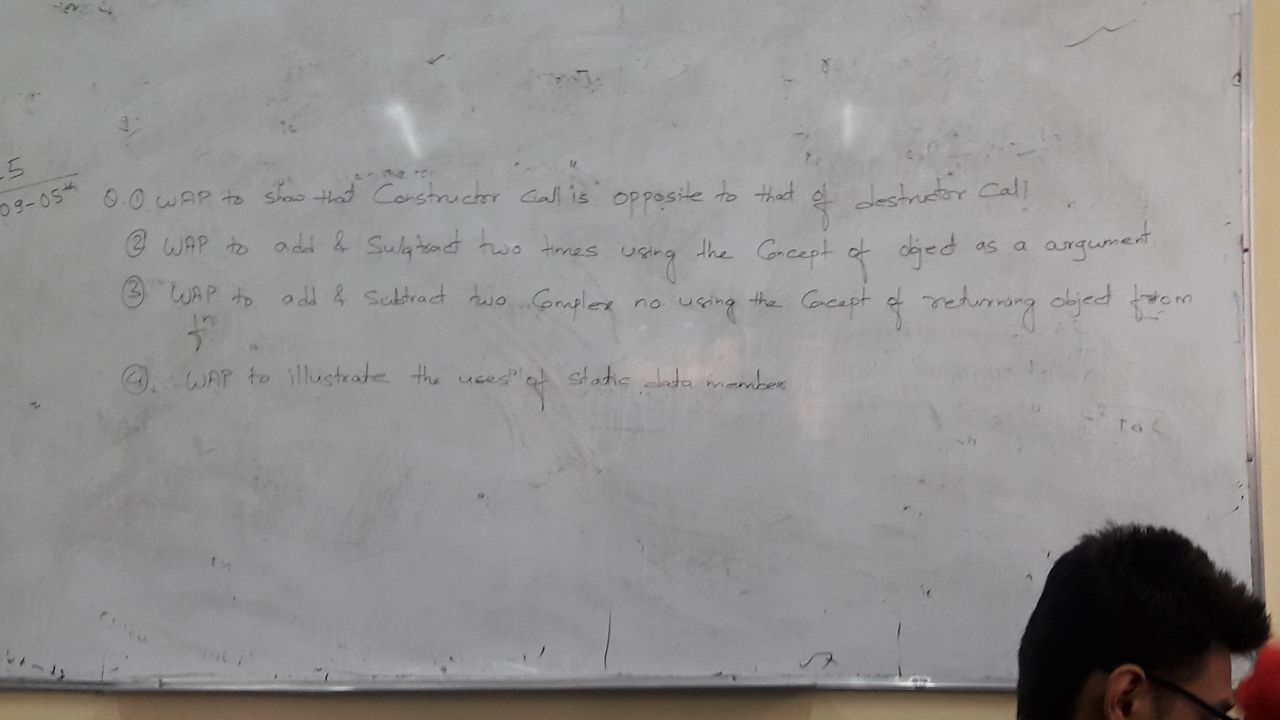 5
09-05th
Q.① WAP to show that Constructor Call is opposite to that of destructor Call
② WAP to add & Subtract two times using the Concept of object as a argument
③ WAP to add & Subtract two Complex no. using the Concept of returning object from
fn
④. WAP to illustrate the uses of static data member